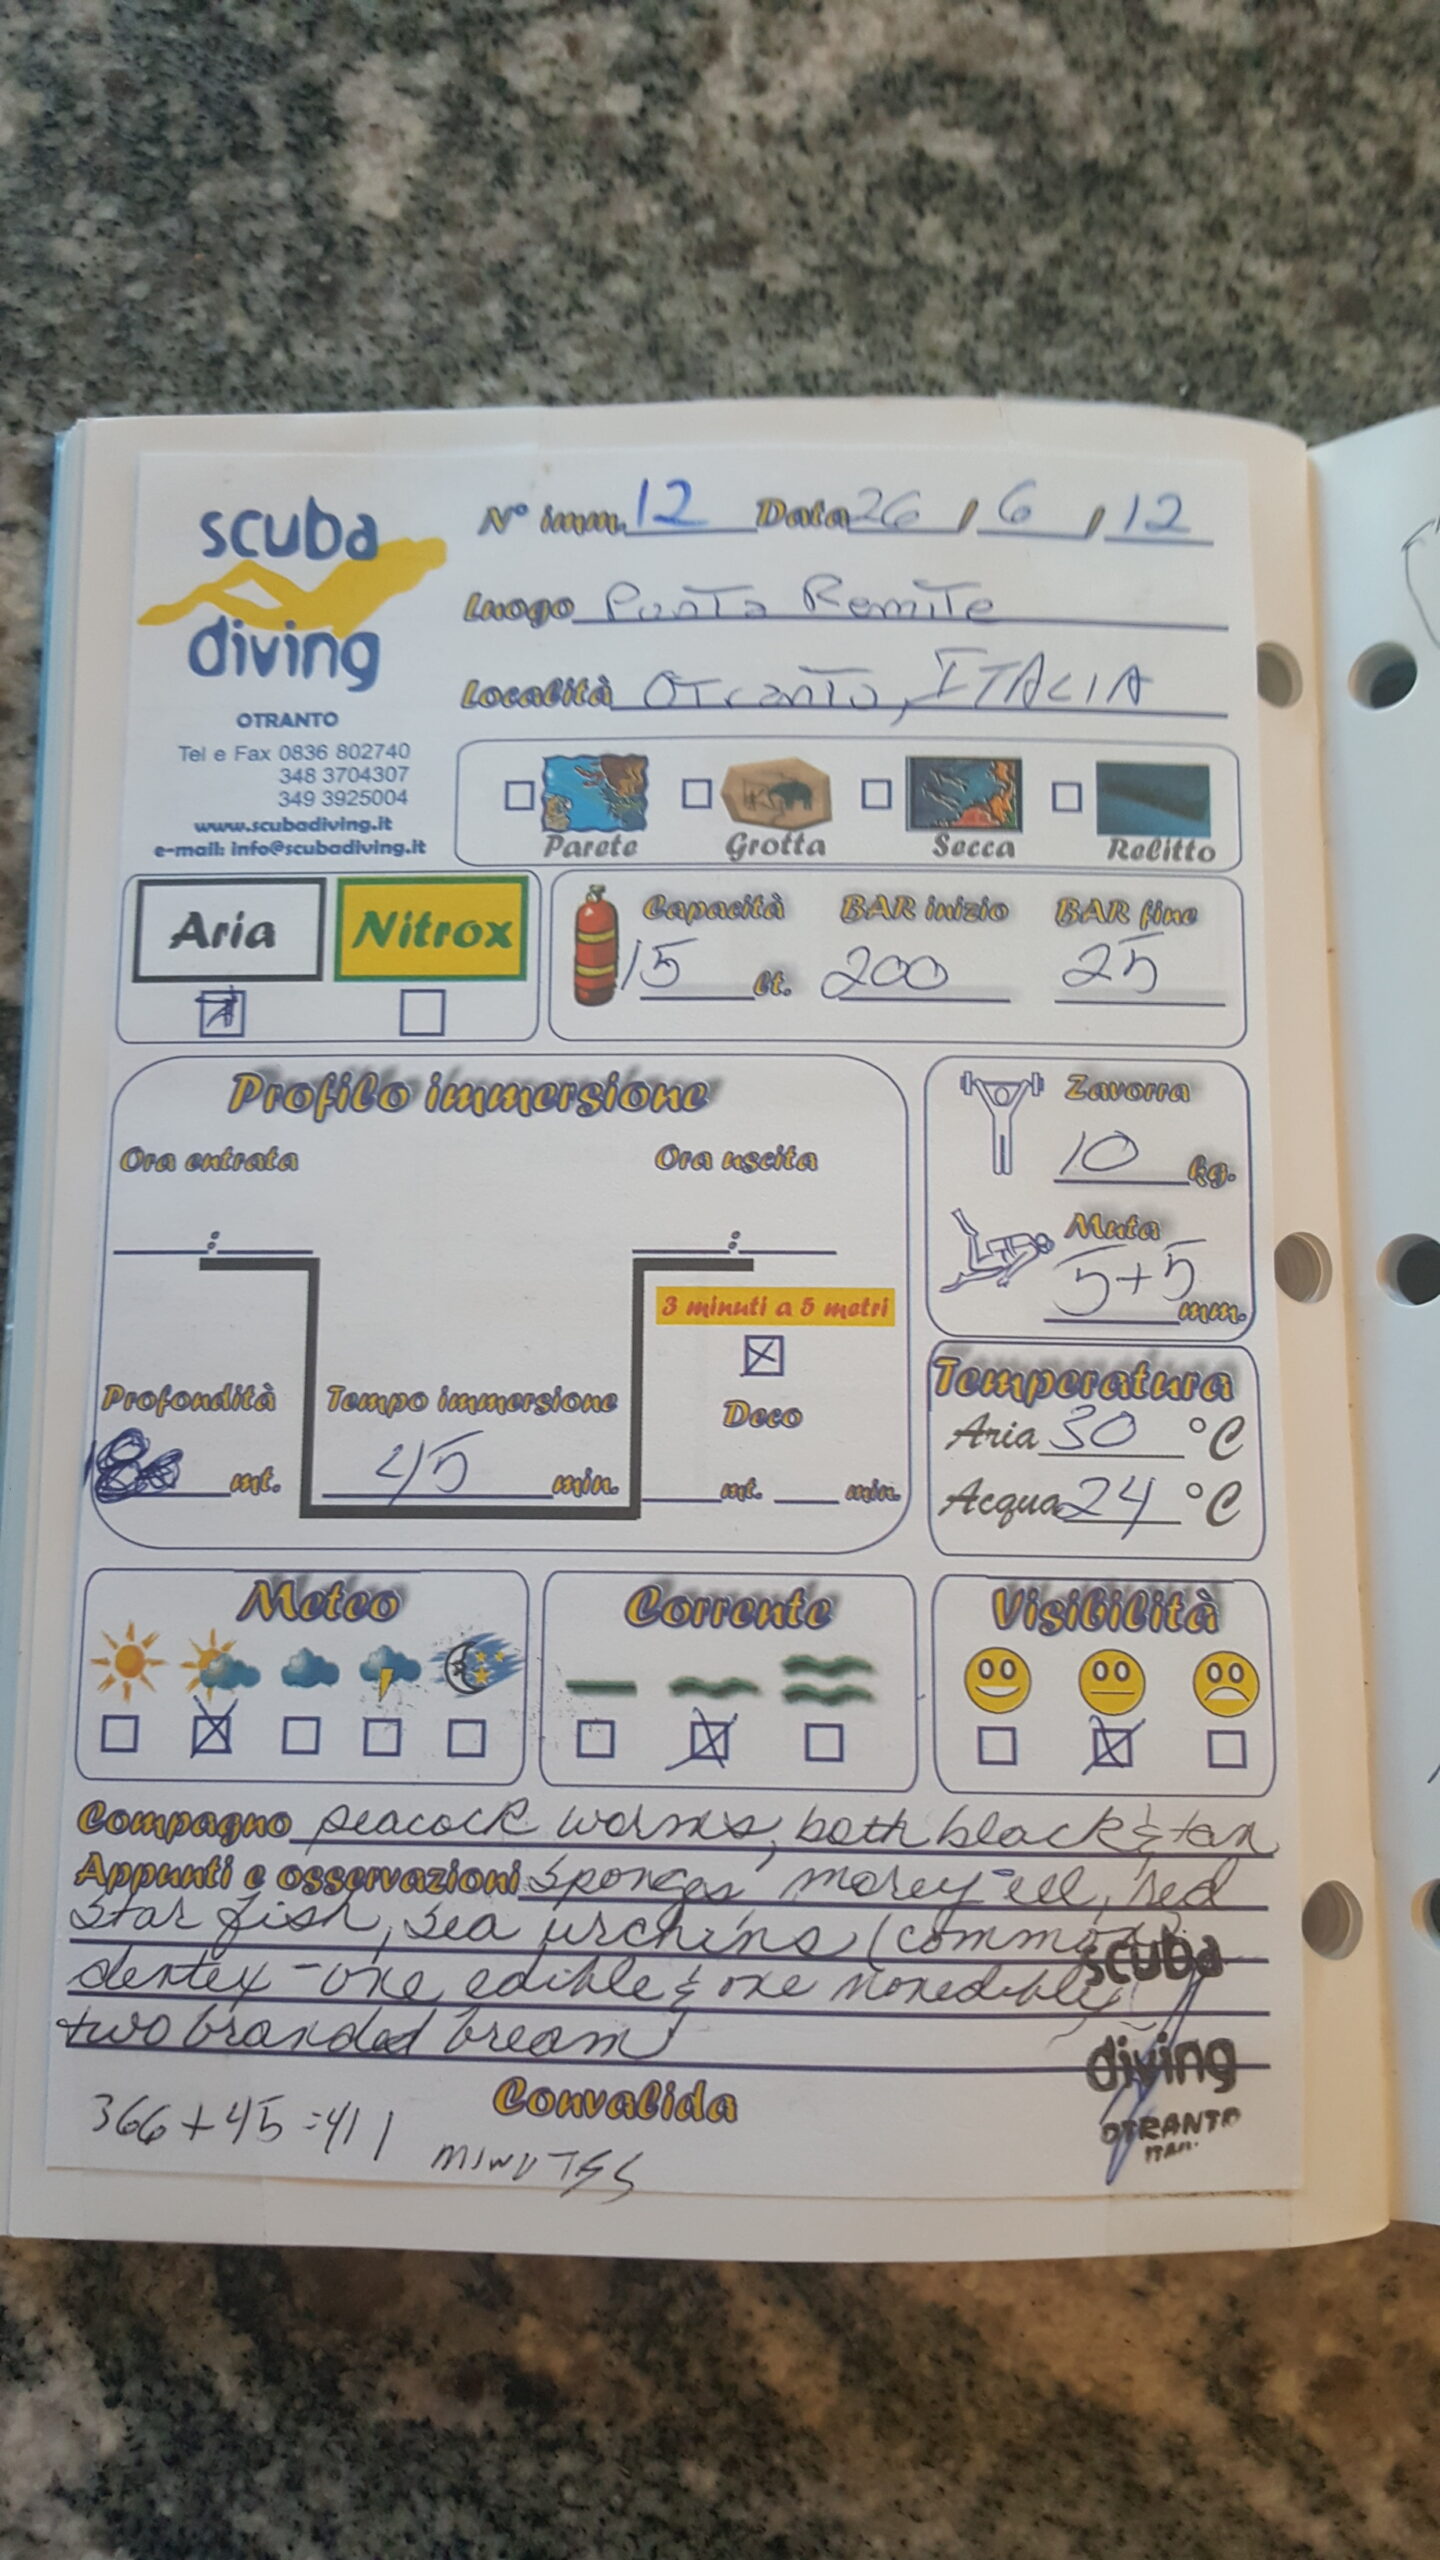 scuba
diving
OTRANTO
Tel e Fax 0836 802740
348 3704307
349 3925004
www.scubadiving.it
e-mail: info@scubadiving.it
N° imm. 12 Data 26 / 6 / 12
Luogo Punta Remite
Località Otranto, ITALIA
Parete Grotta Secca Relitto
Aria Nitrox
Capacità BAR inizio BAR fine
15 lt. 200 25
Profilo immersione
Ora entrata Ora uscita
: :
3 minuti a 5 metri
Profondità Tempo immersione Deco
mt. 45 min. mt. min.
Zavorra
10 kg.
Muta
5+5
mm.
Temperatura
Aria 30 °C
Acqua 24 °C
Meteo Corrente Visibilità
Compagno peacock worms, both black & tan
Appunti e osservazioni sponges, morey eel, red
star fish, sea urchins, (common
dentex - one edible & one nonedible,
two branded bream
Convalida
366 + 45 = 411 MINUTES
scuba
diving
OTRANTO